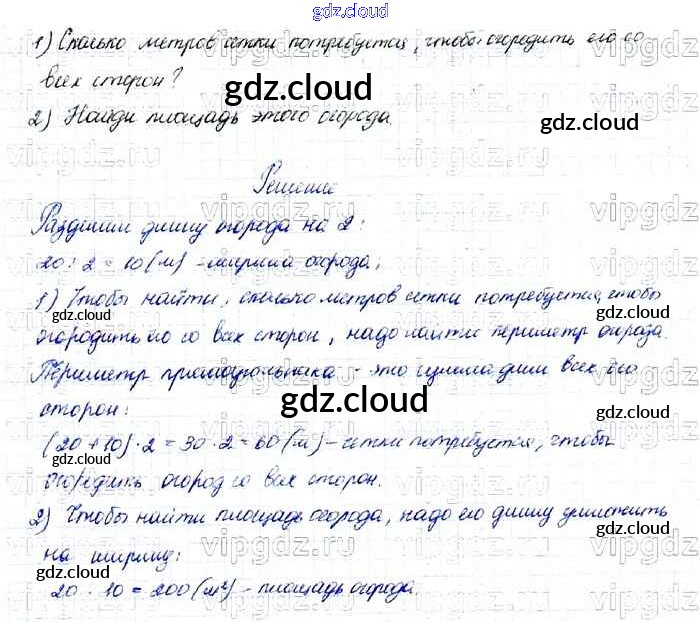 gdz.cloud
1) Сколько метров сетки потребуется, чтобы огородить его со
всех сторон?
gdz.cloud
gdz.cloud
2) Найди площадь этого огорода.
Решение
gdz.cloud
Разделим длину огорода на 2:
20 : 2 = 10 (м) - ширина огорода;
1) Чтобы найти, сколько метров сетки потребуется, чтобы
огородить его со всех сторон, надо найти периметр огорода.
Периметр прямоугольника - это сумма длин всех его
сторон:
gdz.cloud
(20 + 10) · 2 = 30 · 2 = 60 (м) - сетки потребуется, чтобы
gdz.cloud
gdz.cloud
огородить огород со всех сторон.
2) Чтобы найти площадь огорода, надо его длину умножить
gdz.cloud
на ширину:
gdz.cloud
20 · 10 = 200 (м²) - площадь огорода.
vipgdz
vipgdz.ru